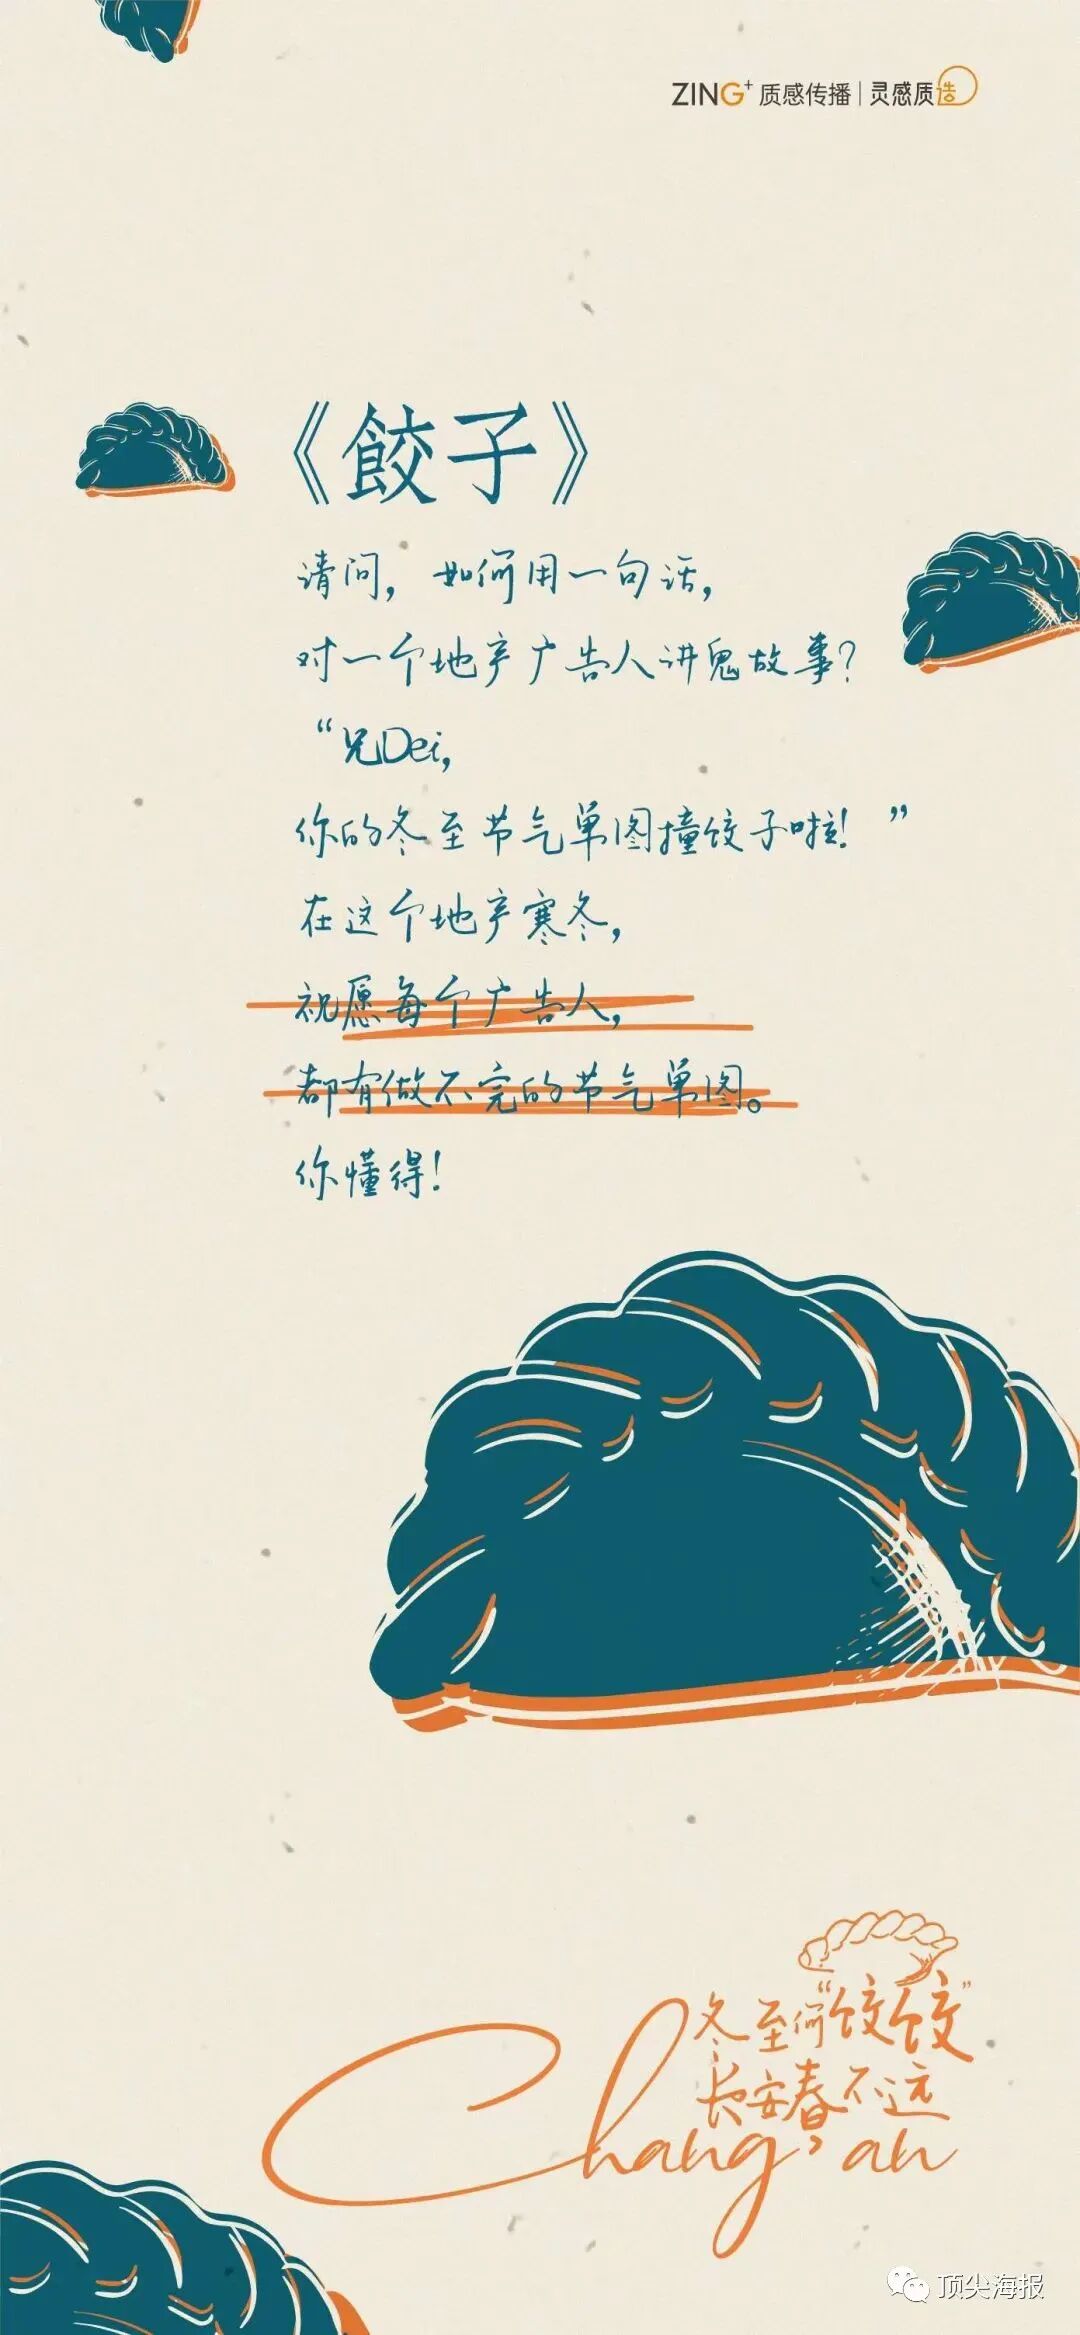 ZING+ 质感传播 | 灵感质造
《餃子》
请问，如何用一句话，
对一个地产广告人讲鬼故事？
“兄Dei，
你的冬至节气单图撞饺子啦！”
在这个地产寒冬，
祝愿每个广告人，
都有做不完的节气单图。
你懂得！
冬至何“饺饺”
长安春不远
Chang'an
顶尖海报